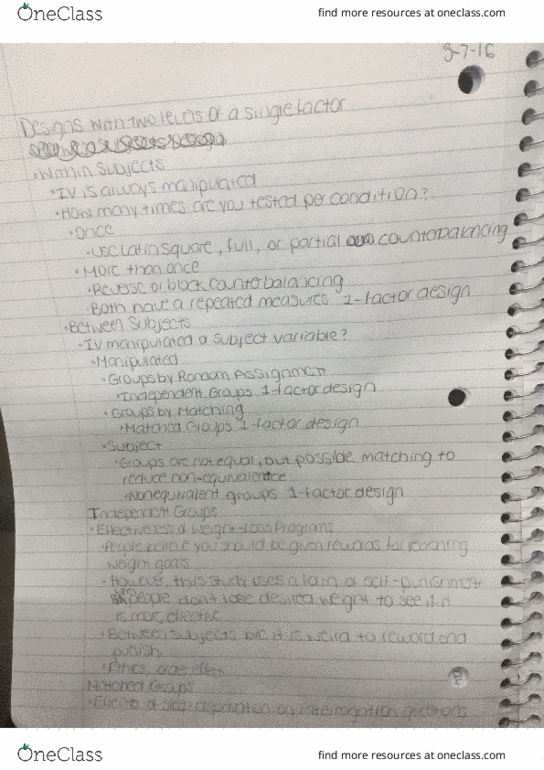 OneClass
find more resources at oneclass.com
3-7-16
Designs with two levels of a single factor
Within Subjects
IV is always manipulated
How many times are you tested per condition?
Once
Use Latin Square, full, or partial counterbalancing
More than once
Reverse or block counterbalancing
Both have a repeated measures 1-factor design
Between Subjects
IV manipulated or subject variable?
Manipulated
Groups by Random Assignment
Independent Groups 1-factor design
Groups by Matching
Matched Groups 1-factor design
Subject
Groups are not equal, but possible matching to
reduce non-equivalence
Nonequivalent groups 1-factor design
Independent Groups
Effectiveness of Weight-Loss Programs
People believe you should be given rewards for reaching
weight goals
However, this study uses a form of self-punishment
people don't lose desired weight to see if it
is more effective
Between subjects b/c it is weird to reward and
punish
Ethics, order effect
Matched Groups
Effects of sleep deprivation on interrogation questions
OneClass
find more resources at oneclass.com